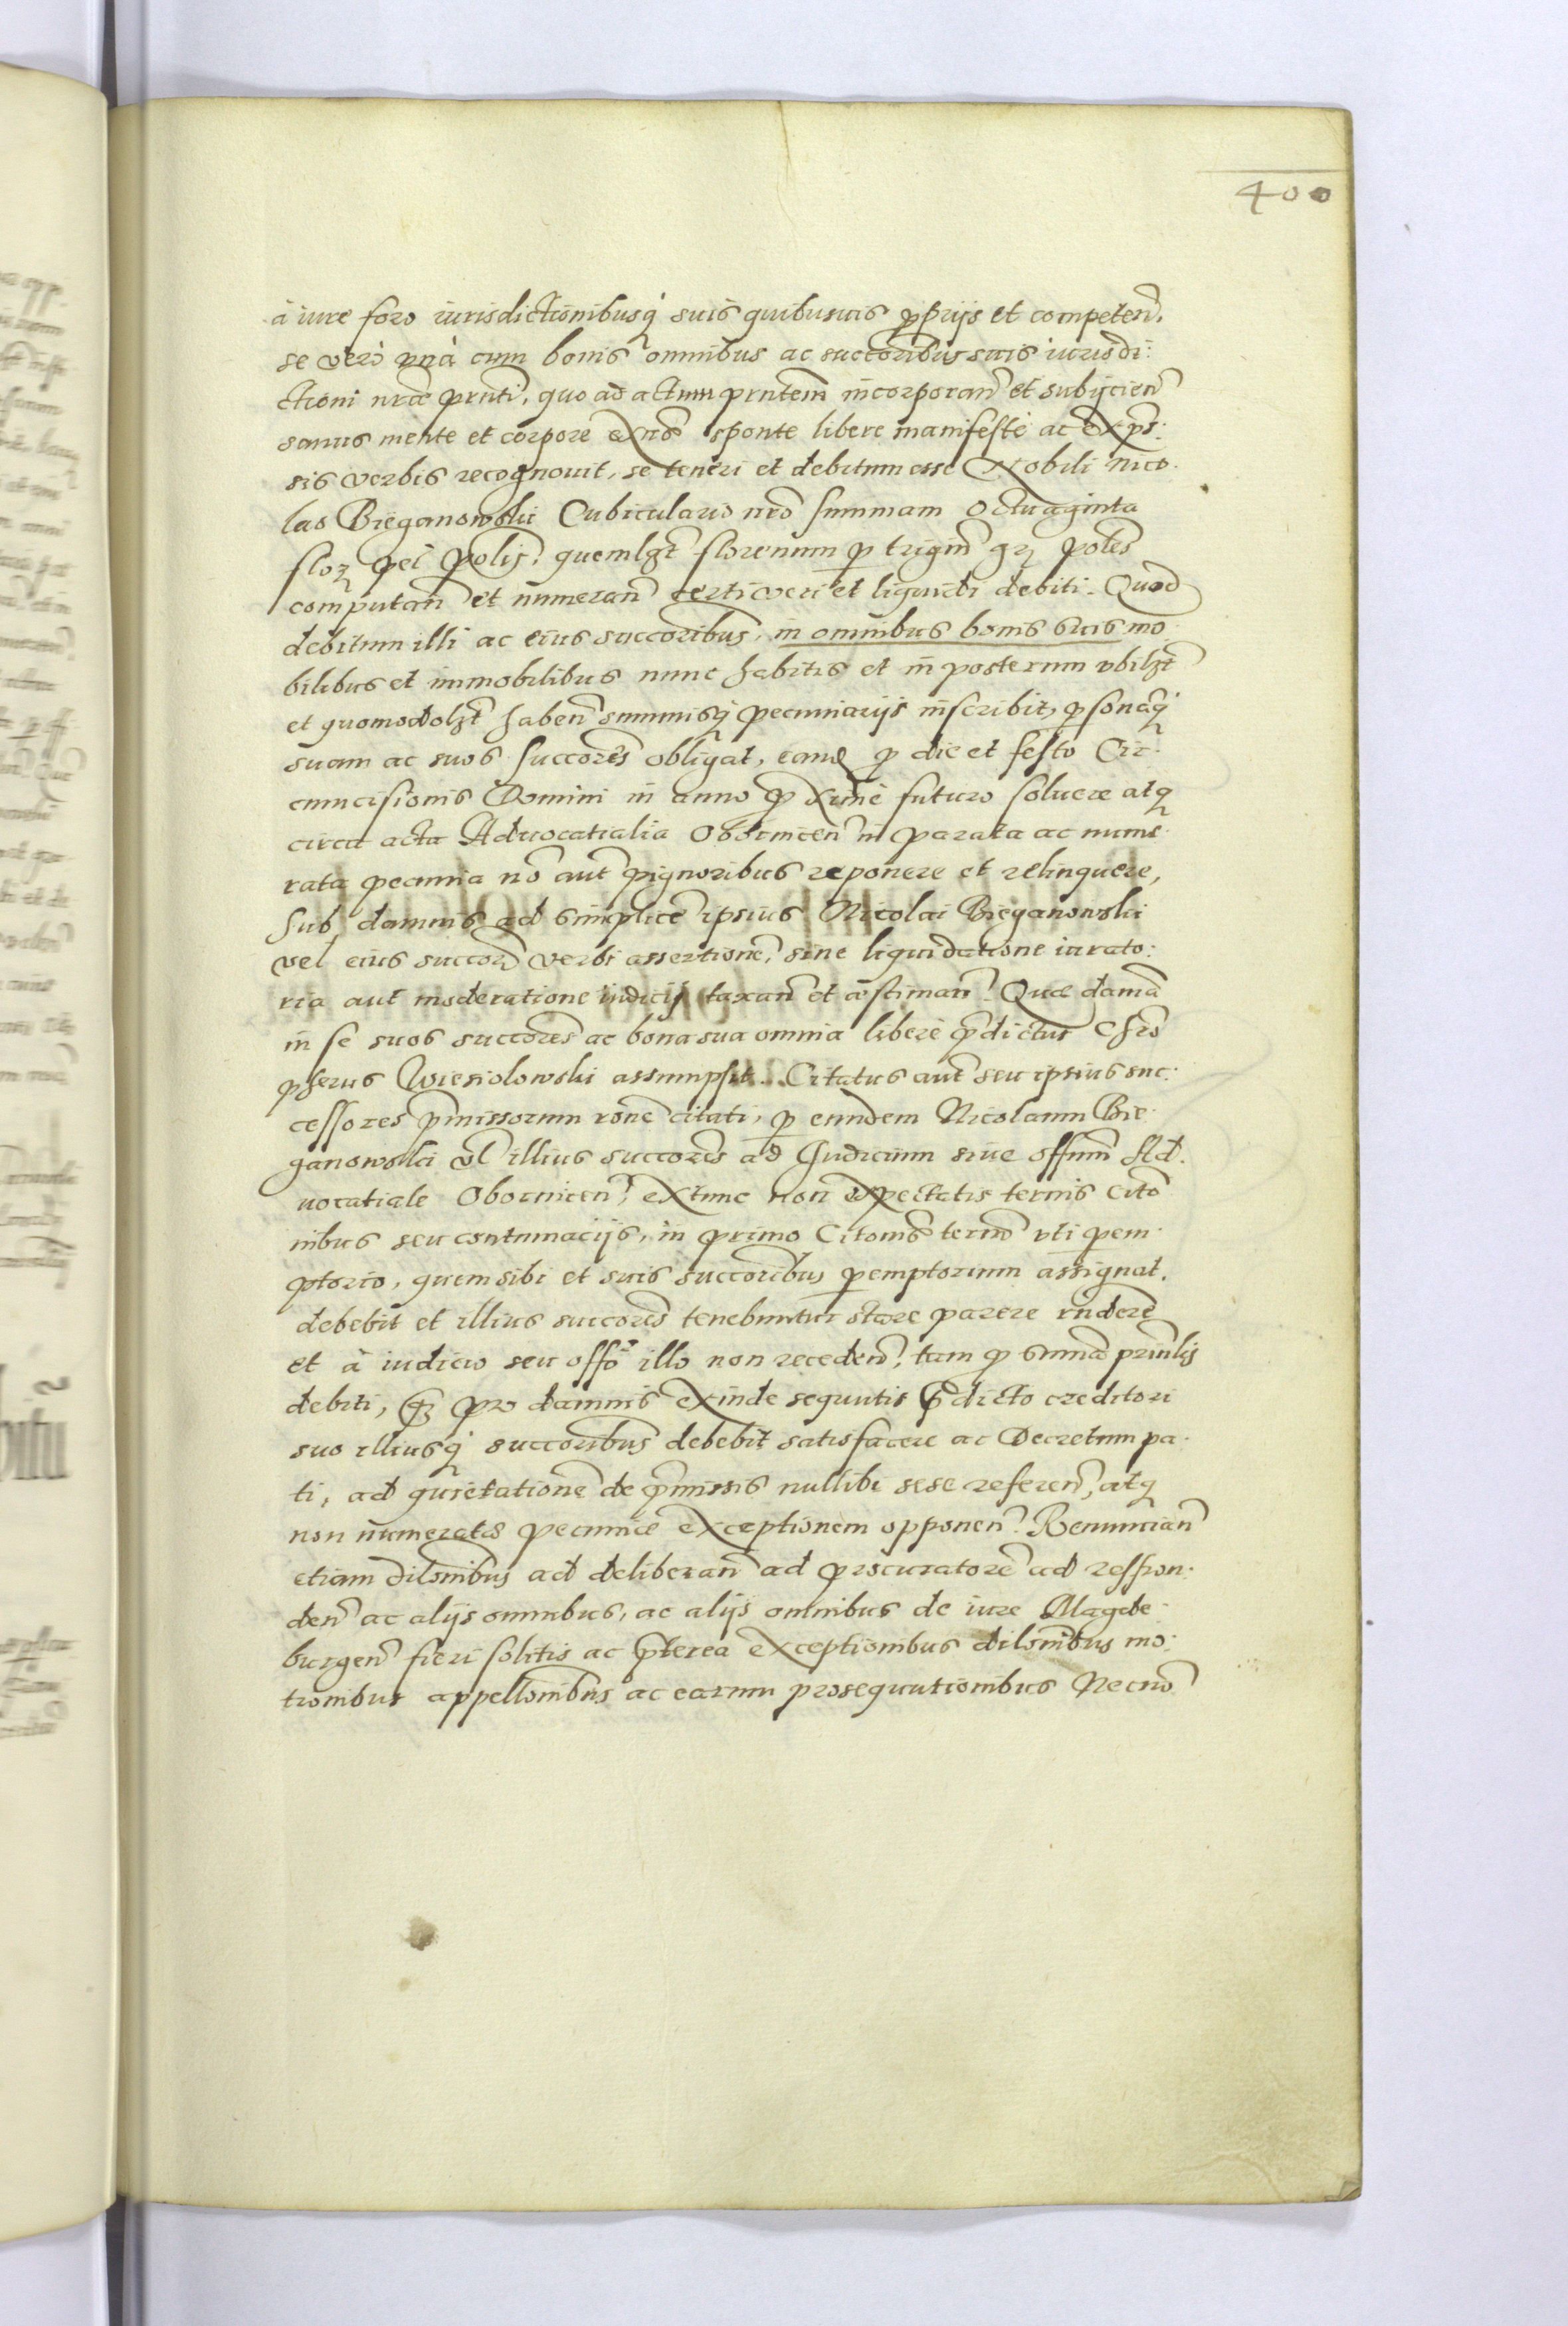 400
à iure foro iurisdictionibusq suis quibusuis pprijs et competen̄.
se verò unà cum bonis omnibus ac succoribus suis iurisdi:
ctioni nrae prnti, quo ad actum prntem incorporan̄ et subijcien̄
sanus mente et corpore exns sponte libere manifestè ac expr:
sis verbis recognouit, se teneri et debitum esse Nobili Nico.
lao Bieganowski Cubiculario nro summam octuaginta
flor pel polis. quemlzt florenum p trigin gr poles
computan̄ et numeran̄ certi veri et liquidi debiti. Quod
debitum illi ac eius succoribus, in omnibus bonis suis mo
bilibus et immobilibus nunc habitis et in posterum vbilzt
et quomodolzt haben̄ summisq pecuniarijs inscribit, psonāq
suam ac suos succores obligat, eamq p die et festo Cir.
cumcisionis Domini in anno proxime futuro soluere atq
circa acta Aduocatialia Obornicen̄ in parata ac nume.
rata pecunia nō aut pignoribus reponere et relinquere,
sub damnis ad simplicē ipsius Nicolai Bieganowski
vel eius succorū verbi assertionē, sine liquidatione iurato:
ria aut moderatione iudicij taxan̄ et æstiman̄. Quæ damā
in se suos succores ac bona sua omnia libere pdictus Chrō
pherus Wiesiolowski assumpsit. Citatus aut seu ipsius suc:
cessores pmissorum rōne citati, p eundem Nicolaum Bie
ganowski vl illius succores ad Judicium siue offm Ad.
uocatiale Obornicen̄, extunc non expectatis ternis cito
nibus seu contumacijs, in primo citōnis termō uti pem.
ptorio, quem sibi et suis succoribus pemptorium assignat.
debebit et illius succores tenebuntur stare parere rndere
et à iudicio seu offō illo non receden̄, tam p summa prinlis
debiti, qz pro damnis exinde sequutis pdicto creditori
suo illiusq succoribus debebit satisfacere ac Decretum pa.
ti, ad quietationē de pmissis nullibi sese referen̄, atq
non numeratæ pecuniæ exceptionem opponen̄. Renuncian̄
etiam dilonibus ad deliberan̄ ad procuratorē ad respon.
den̄ ac alijs omnibus, ac alijs omnibus de iure Magde.
burgen̄ fieri solitis ac pterea exceptionibus dilonibus mo:
tionibus appellonibus ac earum prosequutionibus Necnō